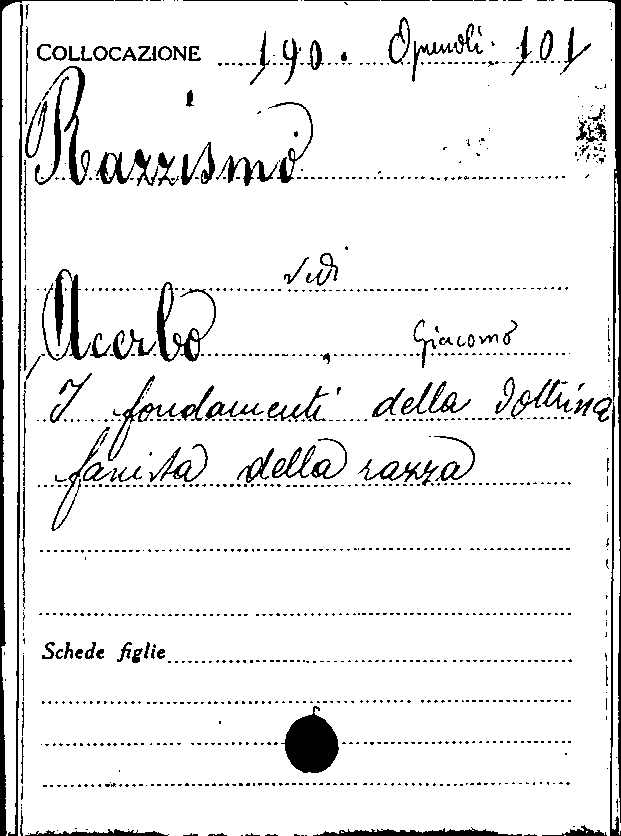 COLLOCAZIONE 190. Opuscoli: 101
Razzismo
vedi
Acerbo, Giacomo
I fondamenti della dottrina
fascista della razza
Schede figlie